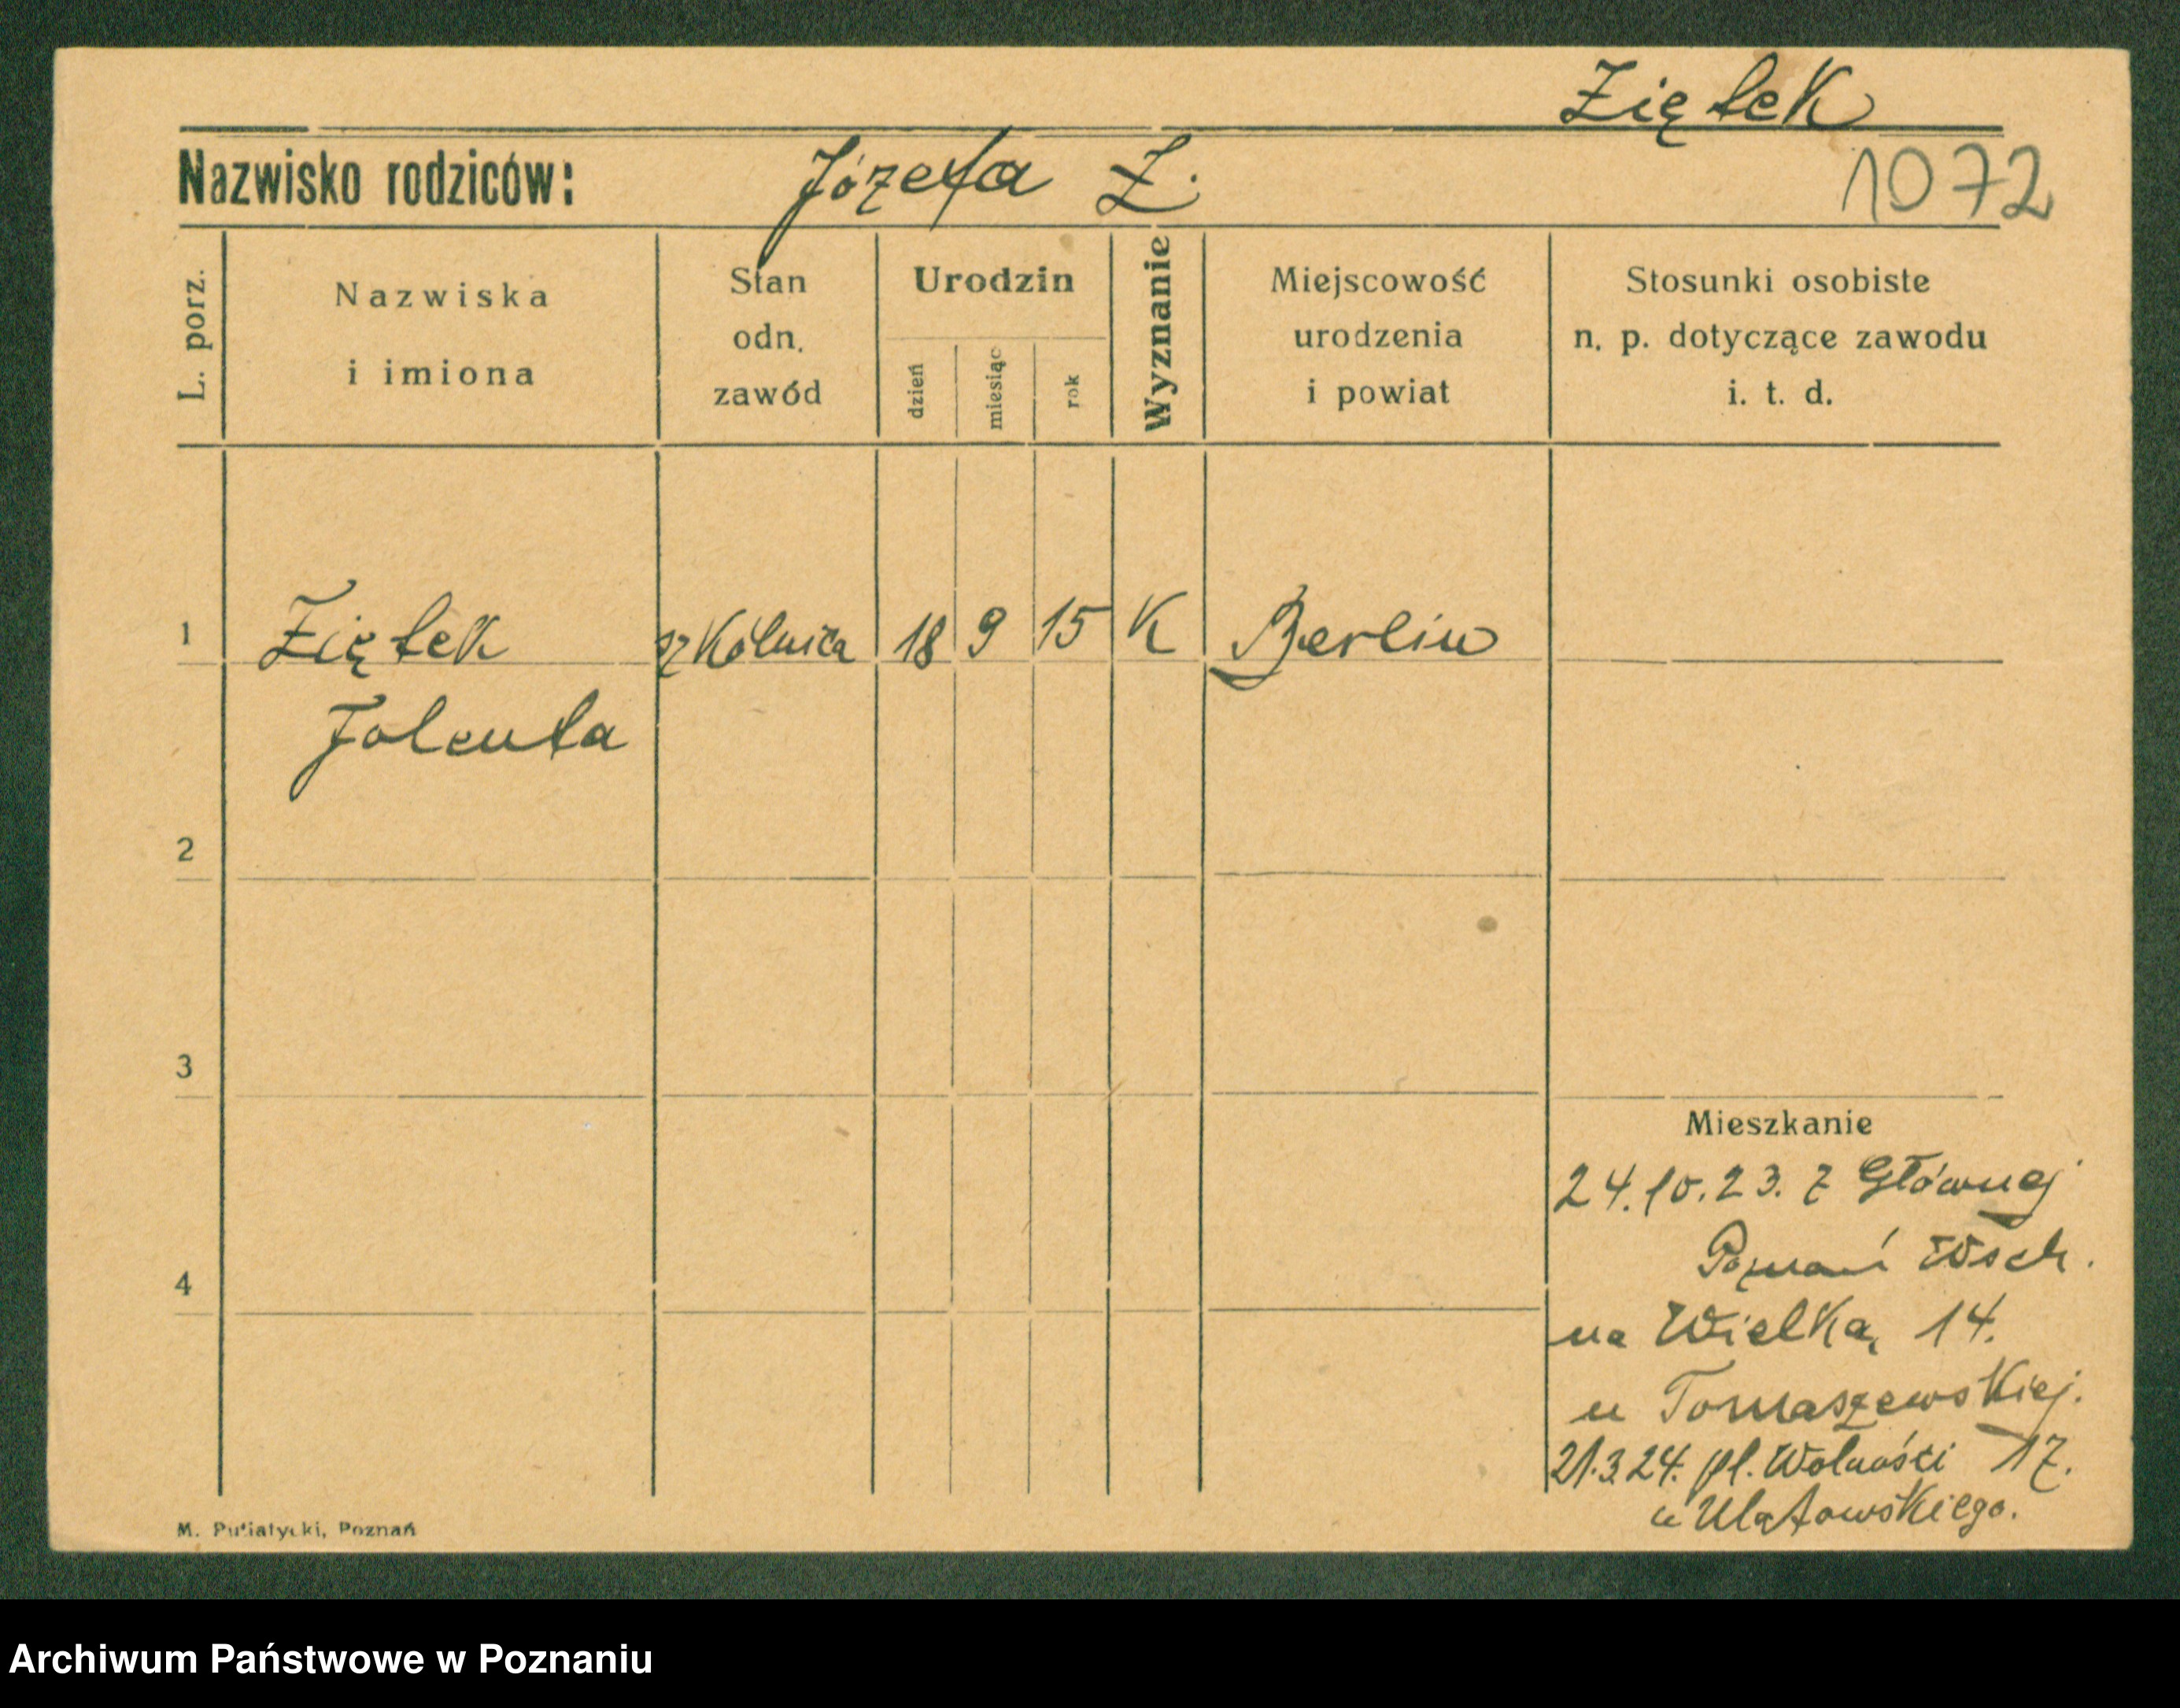 Ziętek
Nazwisko rodziców: Józefa Z.
1072
L. porz.
Nazwiska
i imiona
Stan
odn.
zawód
Urodzin
dzień
miesiąc
rok
Wyznanie
Miejscowość
urodzenia
i powiat
Stosunki osobiste
n. p. dotyczące zawodu
i. t. d.
1 Ziętek szkólnica 18 9 15 K Berlin
Jolenta
2
3
Mieszkanie
24.10.23. z Głównej
4
Poznań Wsch.
na Wielką 14.
u Tomaszewskiej.
21.3.24. pl. Wolności 17.
u Ulatowskiego.
M. Putiatycki, Poznań
Archiwum Państwowe w Poznaniu